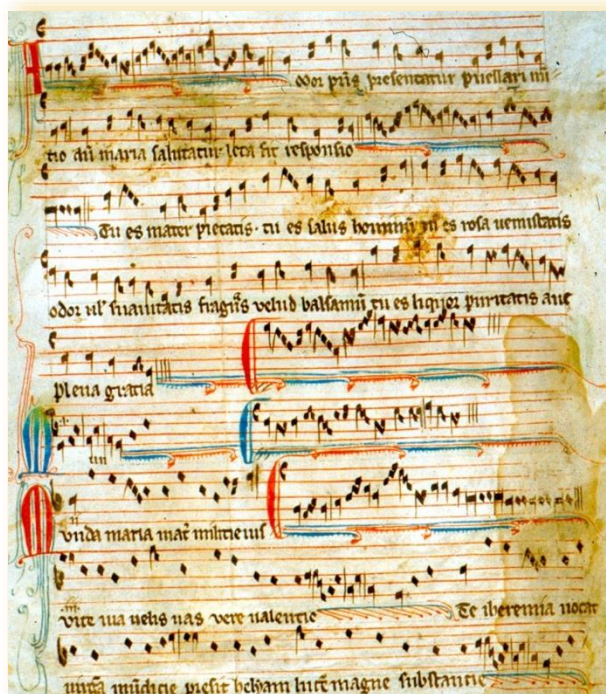 mor pris presentatur puellari mi
tio aui maria salutatur leta fit responsio
Tu es mater pietatis · tu es salus hominum tu es rosa uenustatis
odor suauitatis fragras velud balsamum tu es liquor puritatis aue
plena gratia
unda maria mater militie ius
uite tua uelis uas vere ualentie Te iheremia uocat
mundicie presit lucem magne substantie